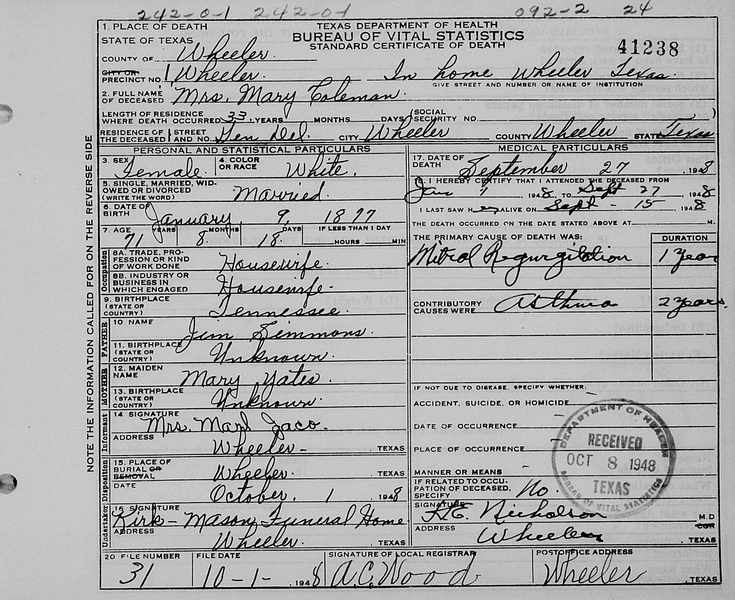 242-0-1 242-0-1 092-2 24
1. PLACE OF DEATH
STATE OF TEXAS
TEXAS DEPARTMENT OF HEALTH
BUREAU OF VITAL STATISTICS
STANDARD CERTIFICATE OF DEATH
41238
COUNTY OF Wheeler
CITY OR PRECINCT NO 1, Wheeler. In home Wheeler Texas.
GIVE STREET AND NUMBER OR NAME OF INSTITUTION
2. FULL NAME OF DECEASED Mrs. Mary Coleman.
LENGTH OF RESIDENCE WHERE DEATH OCCURRED 33 YEARS MONTHS DAYS (SOCIAL SECURITY NO.
RESIDENCE OF THE DECEASED STREET AND NO. Gen Del. CITY Wheeler COUNTY Wheeler STATE Texas
PERSONAL AND STATISTICAL PARTICULARS
3. SEX Female. 4. COLOR OR RACE White.
5. SINGLE, MARRIED, WIDOWED OR DIVORCED (WRITE THE WORD) Married.
6. DATE OF BIRTH January 9, 1877
7. AGE 71 YEARS 8 MONTHS 18 DAYS IF LESS THAN 1 DAY HOURS MIN
Occupation
8A. TRADE, PROFESSION OR KIND OF WORK DONE Housewife.
8B. INDUSTRY OR BUSINESS IN WHICH ENGAGED Housewife.
9. BIRTHPLACE (STATE OR COUNTRY) Tennessee.
FATHER
10 NAME Jim Simmons.
11. BIRTHPLACE (STATE OR COUNTRY) Unknown.
MOTHER
12. MAIDEN NAME Mary Yates
13. BIRTHPLACE (STATE OR COUNTRY) Unknown.
Informant
14 SIGNATURE Mrs.
ADDRESS Wheeler- TEXAS
Disposition
15. PLACE OF BURIAL OR REMOVAL Wheeler. TEXAS
DATE October, 1 1948
Undertaker
16 SIGNATURE Kirk-Mason Funeral Home
ADDRESS Wheeler. TEXAS
MEDICAL PARTICULARS
17. DATE OF DEATH September 27 1948
I HEREBY CERTIFY THAT I ATTENDED THE DECEASED FROM
Jan 1 1948 TO Sept 27 1948
I LAST SAW H er ALIVE ON Sept - 15 1948
THE DEATH OCCURRED ON THE DATE STATED ABOVE AT M.
THE PRIMARY CAUSE OF DEATH WAS: DURATION
Mitral Regurgitation 1 Year
CONTRIBUTORY CAUSES WERE Asthma 2 years.
IF NOT DUE TO DISEASE, SPECIFY WHETHER:
ACCIDENT, SUICIDE, OR HOMICIDE
DATE OF OCCURRENCE
PLACE OF OCCURRENCE
MANNER OR MEANS
IF RELATED TO OCCUPATION OF DECEASED, SPECIFY No.
SIGNATURE Nicholson M.D
ADDRESS Wheeler TEXAS
DEPARTMENT OF HEALTH
RECEIVED
OCT 8 1948
TEXAS
BUREAU OF VITAL STATISTICS
20 FILE NUMBER 31 FILE DATE 10-1- 1948 SIGNATURE OF LOCAL REGISTRAR A.C. Wood POSTOFFICE ADDRESS Wheeler TEXAS
NOTE THE INFORMATION CALLED FOR ON THE REVERSE SIDE